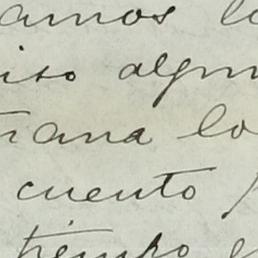 amos lo
iso algun
ana lo
cuento
tiempo